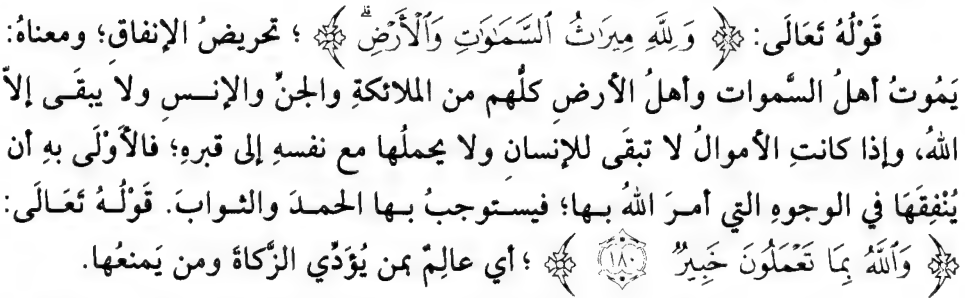 قَوْلُهُ تَعَالَى: ﴿ وَلِلَّهِ مِيرَاثُ ٱلسَّمَـٰوَٰتِ وَٱلْأَرْضِۗ ﴾ ؛ تحريضُ الإنفاقِ؛ ومعناهُ:
يَمُوتُ أهلُ السَّموات وأهلُ الأرضِ كلُّهم من الملائكةِ والجنِّ والإنسِ ولا يبقَى إلاَّ
اللهُ، وإذا كانتِ الأموالُ لا تبقَى للإنسانِ ولا يحملُها مع نفسهِ إلى قبرهِ؛ فالأَوْلَى بهِ أن
يُنْفِقَهَا في الوجوهِ التي أمرَ اللهُ بها؛ فيستوجبُ بها الحمدَ والثوابَ. قَوْلُهُ تَعَالَى:
﴿ وَٱللَّهُ بِمَا تَعْمَلُونَ خَبِيرٌ ١٨٠ ﴾ ؛ أي عالِمٌ بمن يُؤَدِّي الزَّكاةَ ومن يَمنعُها.